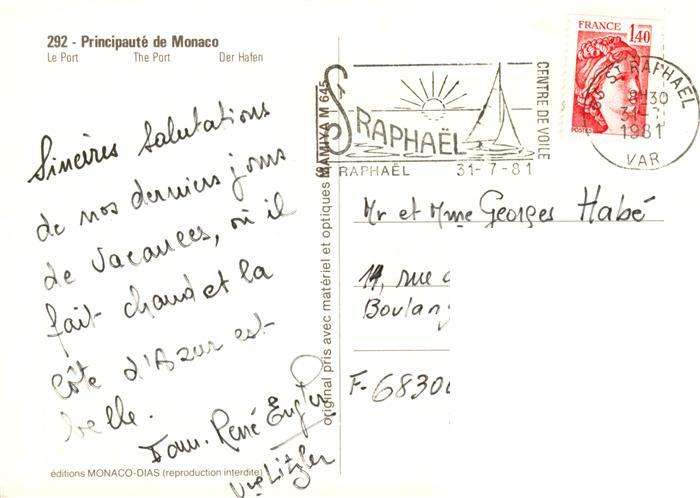 292 - Principauté de Monaco
Le Port The Port Der Hafen
Sincères Salutations
de nos derniers jours
de Vacances, où il
fait chaud et la
côte d'Azur est
belle.
Fam. René
éditions MONACO-DIAS (reproduction interdite)
original pris avec matériel et optiques MAMIYA M 645
FRANCE 1,40
POSTES
ST RAPHAËL
CENTRE DE VOILE
RAPHAËL 31-7-81
ST RAPHAEL
8H30
31-
1981
VAR
Mr et Mme Georges Habé
14, rue
Boulang
F-6830